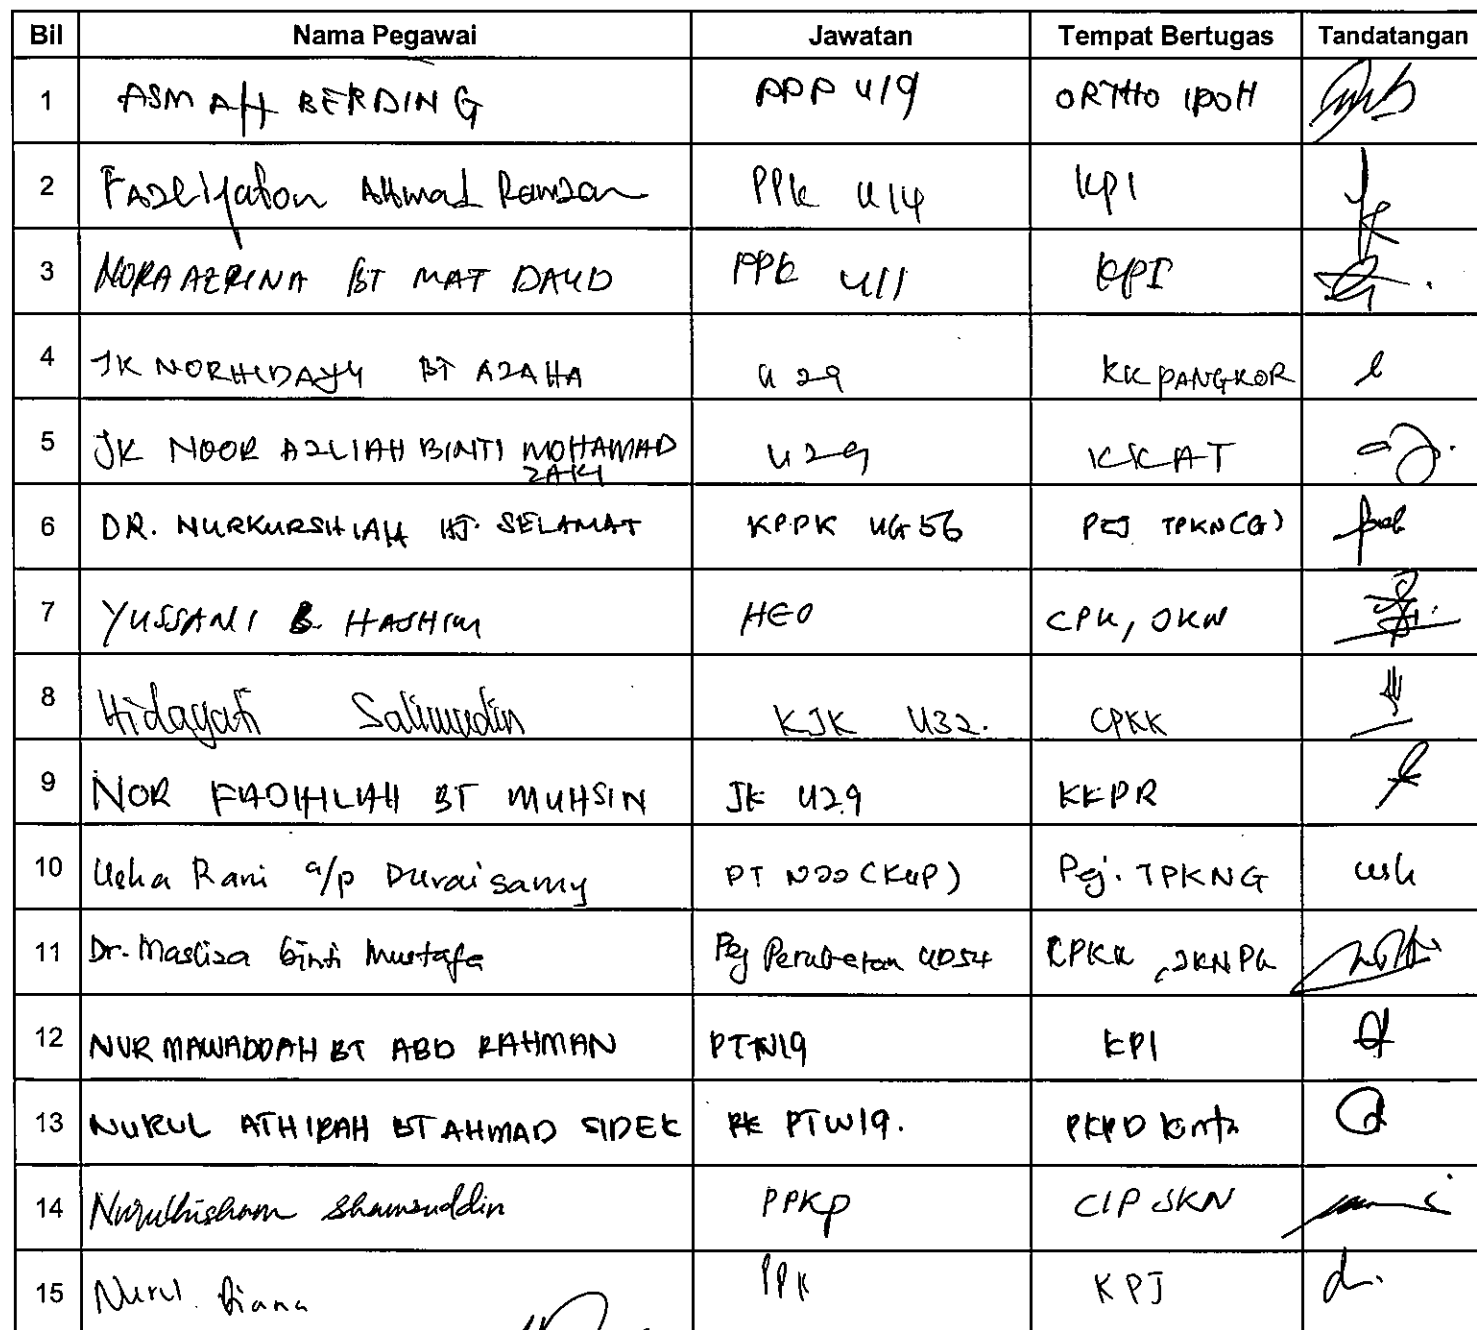 Bil Nama Pegawai Jawatan Tempat Bertugas Tandatangan
1 ASMAH BERDING PPP U19 ORTHO IPOH
2 Fazliyaton Ahmad Ramzan PPK U14 KPI
3 NORA AZRINA BT MAT DAUD PPK U11 KPI
4 JK NORHIDAYU BT AZAHA U29 KK PANGKOR
5 JK NOOR AZLIAH BINTI MOHAMAD U29 KKAT
ZAKI
6 DR. NURKURSHIAH BT. SELAMAT KPPK UG56 PEJ TPKN(G)
7 YUSSANI B. HASHIM HEO CPK, JKN
8 Hidayati Salimudin KJK U32. CPKK
9 NOR FADHILAH BT MUHSIN JK U29 KKPR
10 Usha Rani a/p Duraisamy PT N20 (KUP) Pej. TPKNG
11 Dr. Masliza binti Mustafa Peg Perubatan UD54 CPKK, JKNPK
12 NUR MAWADDAH BT ABD RAHMAN PTN19 KPI
13 NURUL ATHIRAH BT AHMAD SIDEK PTW19. PKPD Kinta
14 Nurulhisham Shamsuddin PPKP CIP JKN
15 Nurul Diana PPK KPJ